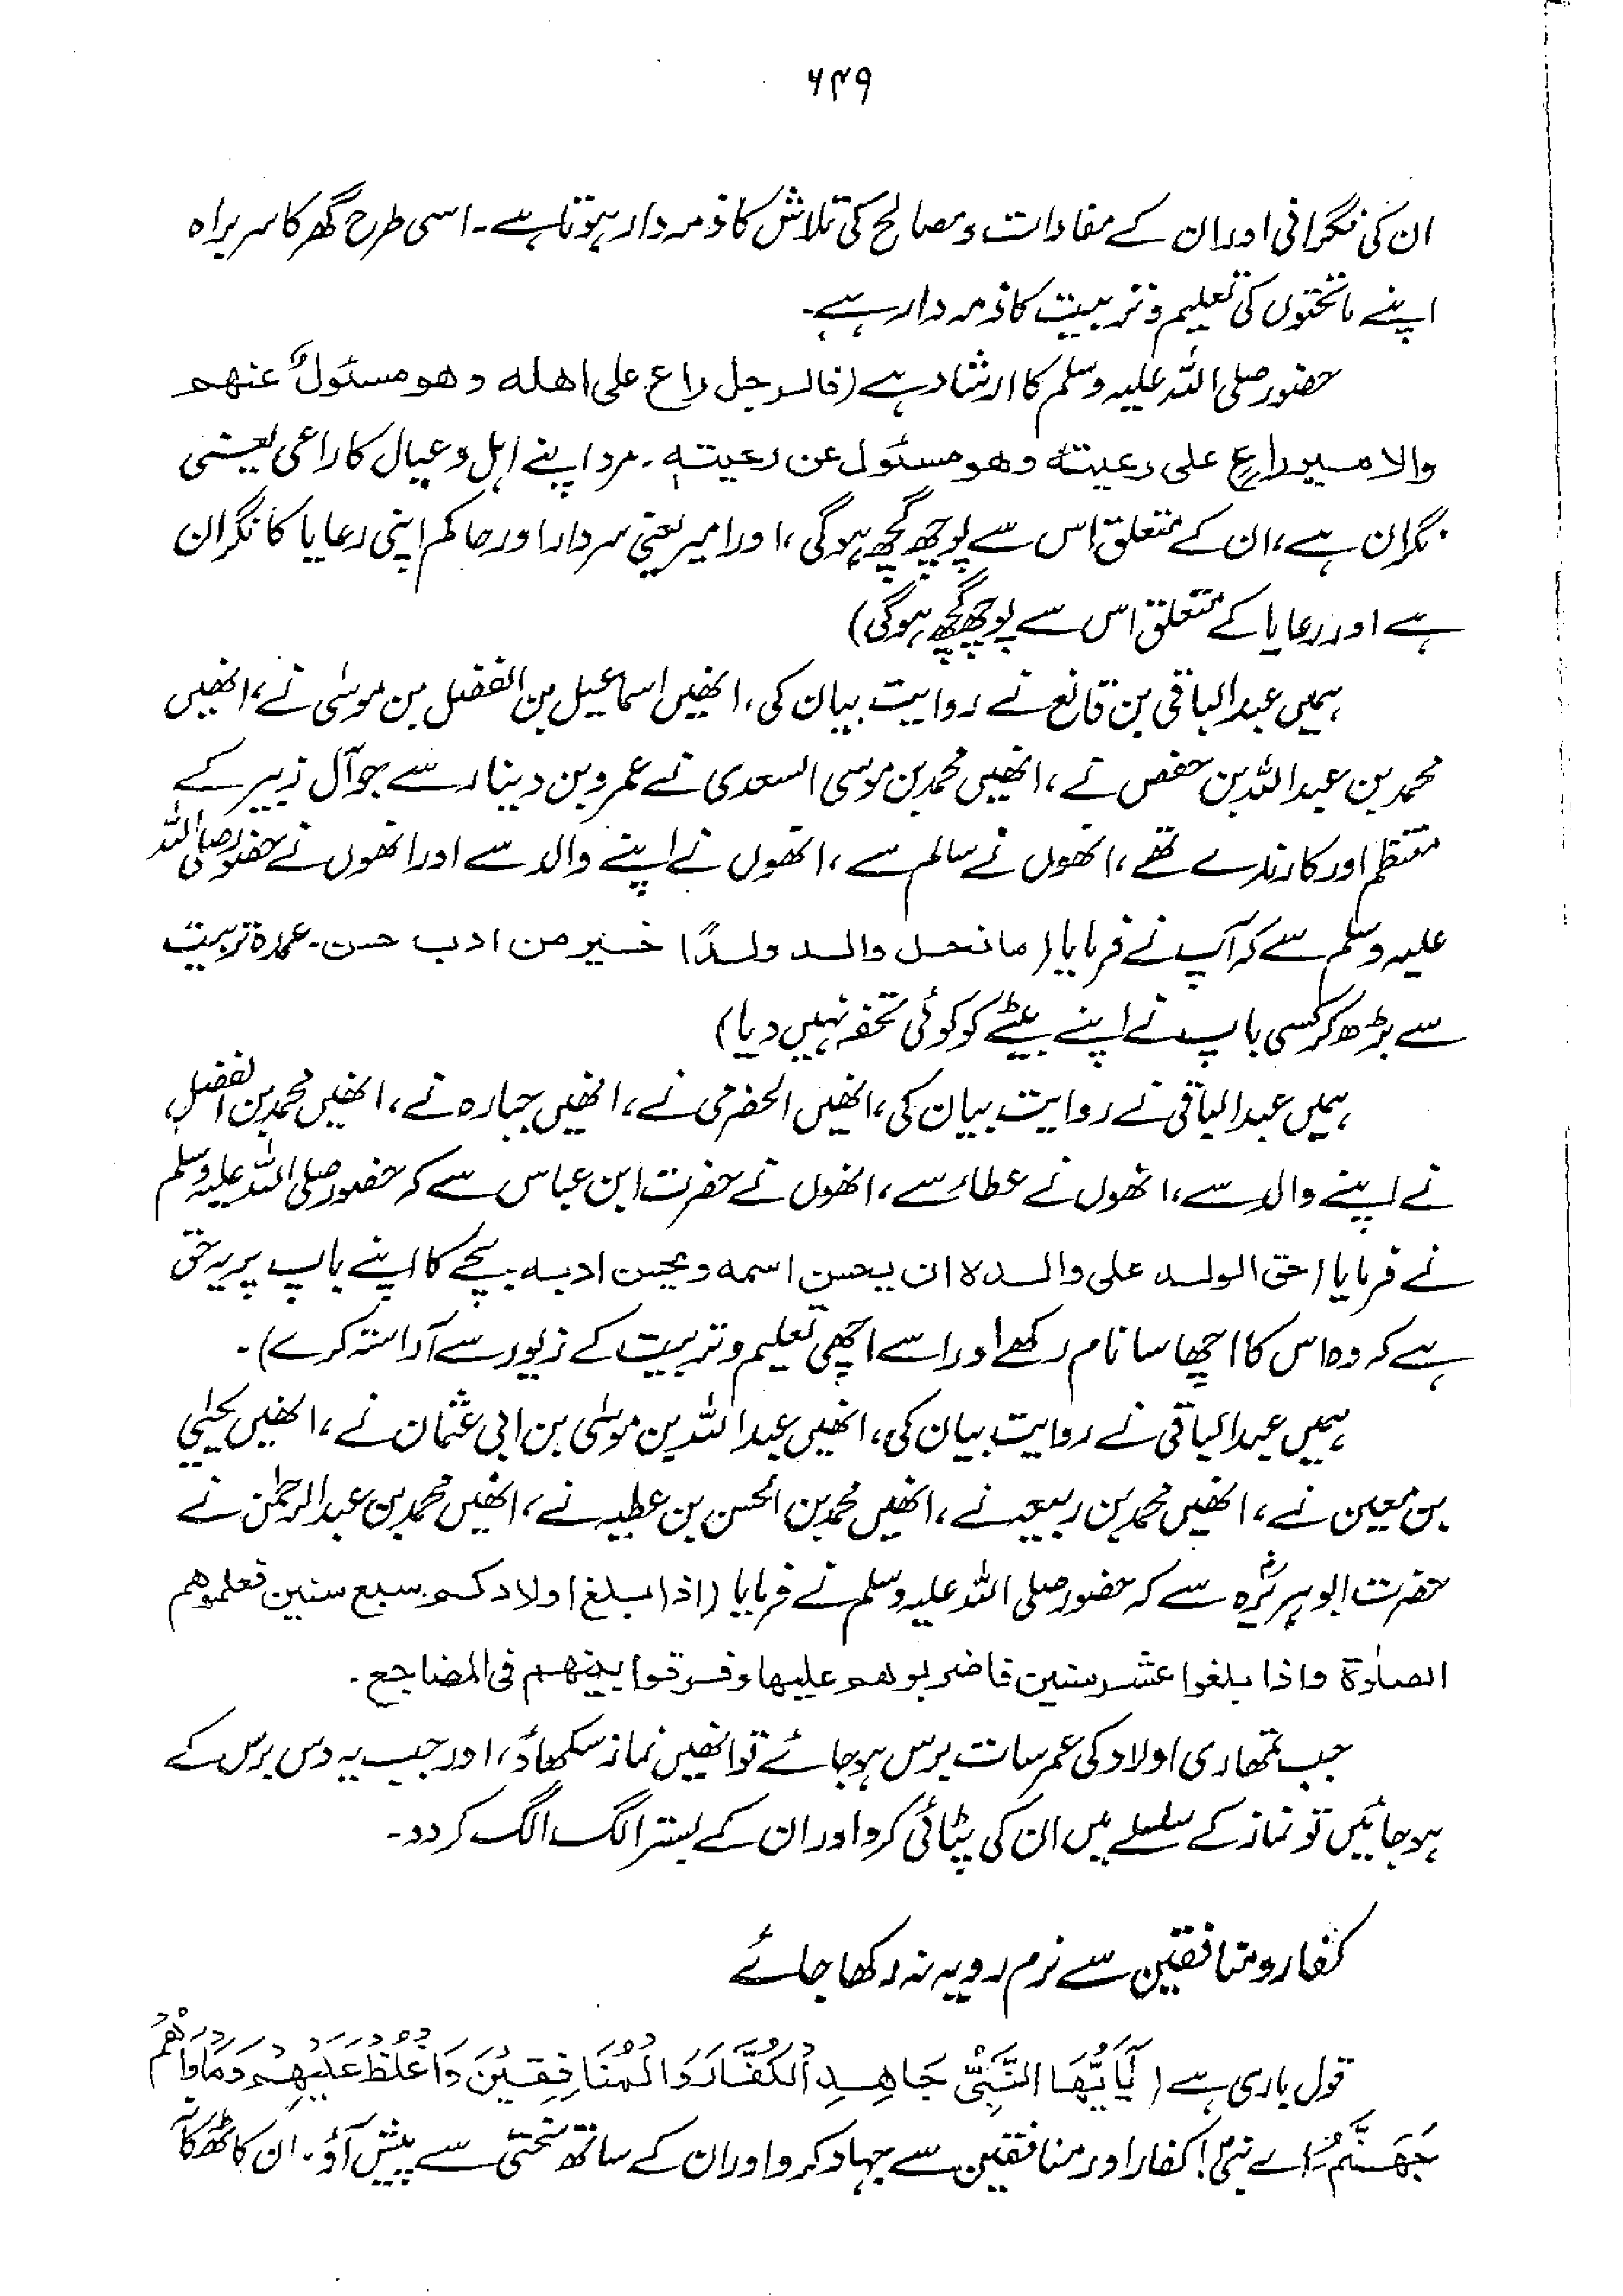 ۶۴۹
ان کی نگرانی اور ان کے مفادات و مصالح کی تلاش کا ذمہ دار ہوتا ہے۔ اسی طرح گھر کا سربراہ
اپنے ماتحتوں کی تعلیم و تربیت کا ذمہ دار ہے۔
حضور صلی اللہ علیہ وسلم کا ارشاد ہے (فالرجل راع علی اھلہ وھو مسئولٌ عنھم
والامیر راعٍ علی رعیتہ وھو مسئول عن رعیتہ۔ مرد اپنے اہل و عیال کا راعی یعنی
نگران ہے، ان کے متعلق اس سے پوچھ گچھ ہوگی، اور امیر یعنی سردار اور حاکم اپنی رعایا کا نگران
ہے اور رعایا کے متعلق اس سے پوچھ گچھ ہوگی)
ہمیں عبدالباقی بن قانع نے روایت بیان کی، انھیں اسماعیل بن الفضل بن موسیٰ نے، انھیں
محمد بن عبداللہ بن حفص نے، انھیں محمد بن موسی السعدی نے عمرو بن دینار سے جو آل زبیر کے
منتظم اور کارندے تھے، انھوں نے سالم سے، انھوں نے اپنے والد سے اور انھوں نے حضور صلی اللہ
علیہ وسلم سے کہ آپ نے فرمایا (ما نحل والد ولدًا خیر من ادب حسن۔ عمدہ تربیت
سے بڑھ کر کسی باپ نے اپنے بیٹے کو کوئی تحفہ نہیں دیا)
ہمیں عبدالباقی نے روایت بیان کی، انھیں الحضرمی نے، انھیں جبارہ نے، انھیں محمد بن الفضل
نے اپنے والد سے، انھوں نے عطاء سے، انھوں نے حضرت ابن عباس سے کہ حضور صلی اللہ علیہ وسلم
نے فرمایا (حق الولد علی والدہ ان یحسن اسمہ ویحسن ادبہ۔ بچے کا اپنے باپ پر یہ حق
ہے کہ وہ اس کا اچھا سا نام رکھے اور اسے اچھی تعلیم و تربیت کے زیور سے آراستہ کرے)۔
ہمیں عبدالباقی نے روایت بیان کی، انھیں عبداللہ بن موسیٰ بن ابی عثمان نے، انھیں یحییٰ
بن معین نے، انھیں محمد بن ربیعہ نے، انھیں محمد بن الحسن بن عطیہ نے، انھیں محمد بن عبدالرحمٰن نے
حضرت ابوہریرہؓ سے کہ حضور صلی اللہ علیہ وسلم نے فرمایا (اذا بلغ اولادکم سبع سنین فعلموھم
الصلٰوۃ واذا بلغوا عشر سنین فاضربوھم علیھا وفرقوا بینھم فی المضاجع۔
جب تمھاری اولاد کی عمر سات برس ہوجائے تو انھیں نماز سکھاؤ، اور جب یہ دس برس کے
ہوجائیں تو نماز کے سلسلے میں ان کی پٹائی کرو اور ان کے بستر الگ الگ کردو۔
کفار و منافقین سے نرم رویہ نہ رکھا جائے
قول باری ہے (یٰٓاَیُّھَا النَّبِیُّ جَاھِدِ الْکُفَّارَ وَالْمُنَافِقِیْنَ وَاغْلُظْ عَلَیْھِمْ وَمَأْوَاھُمْ
جَھَنَّمُ، اے نبیؐ! کفار اور منافقین سے جہاد کرو اور ان کے ساتھ سختی سے پیش آؤ۔ ان کا ٹھکانہ